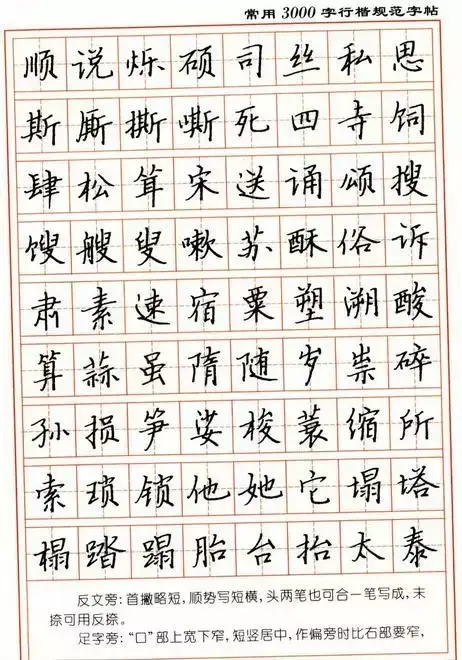 常用3000字行楷规范字帖
顺说烁硕司丝私思
斯厮撕嘶死四寺饲
肆松耸宋送诵颂搜
馊艘叟嗽苏酥俗诉
肃素速宿粟塑溯酸
算蒜虽隋随岁祟碎
孙损笋娑梭蓑缩所
索琐锁他她它塌塔
榻踏蹋胎台抬太泰
反文旁：首撇略短，顺势写短横，头两笔也可合一笔写成，末
捺可用反捺。
足字旁：“口”部上宽下窄，短竖居中，作偏旁时比右部要窄，